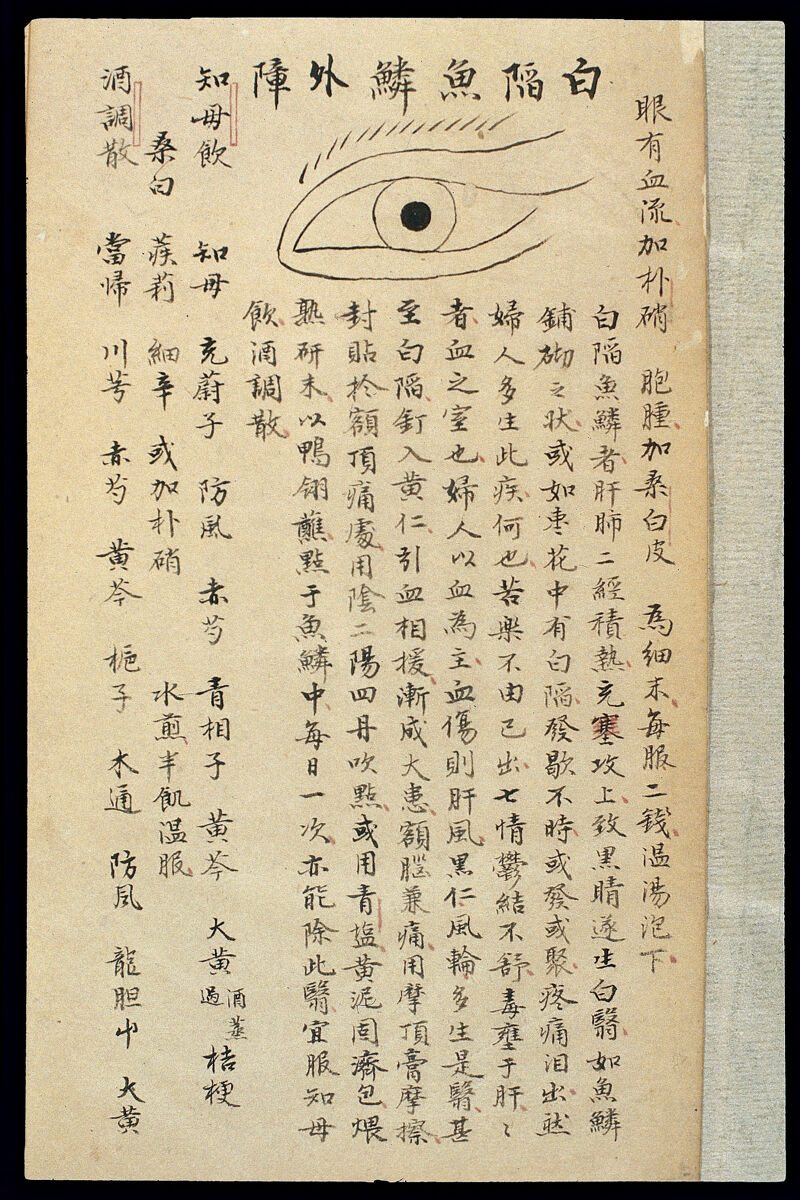 眼有血流加朴硝　胞腫加桑白皮　為細末每服二錢温湯泡下
白陥魚鱗外障
白陥魚鱗者肝肺二經積熱充塞攻上致黒睛遂生白翳如魚鱗
鋪砌之状或如棗花中有白陥發歇不時或發或聚疼痛泪出然
婦人多生此疾何也苦樂不由已出七情鬱結不舒毒壅于肝〻
者血之室也婦人以血為主血傷則肝風黒仁風輪多生是翳甚
至白陥釘入黄仁引血相援漸成大患額腦兼痛用摩頂膏摩擦
封貼於額頂痛處用陰二陽四丹吹點或用青塩黄泥固濟包煨
熟研末以鴨翎蘸點于魚鱗中每日一次亦能除此翳宜服知母
飲酒調散
知母飲　知母　充蔚子　防風　赤芍　青相子　黄芩　大黄酒蒸過　桔梗
桑白　蒺莉　細辛　或加朴硝　水煎半飢温服
酒調散　當帰　川芎　赤芍　黄芩　梔子　木通　防風　龍胆艸　大黄